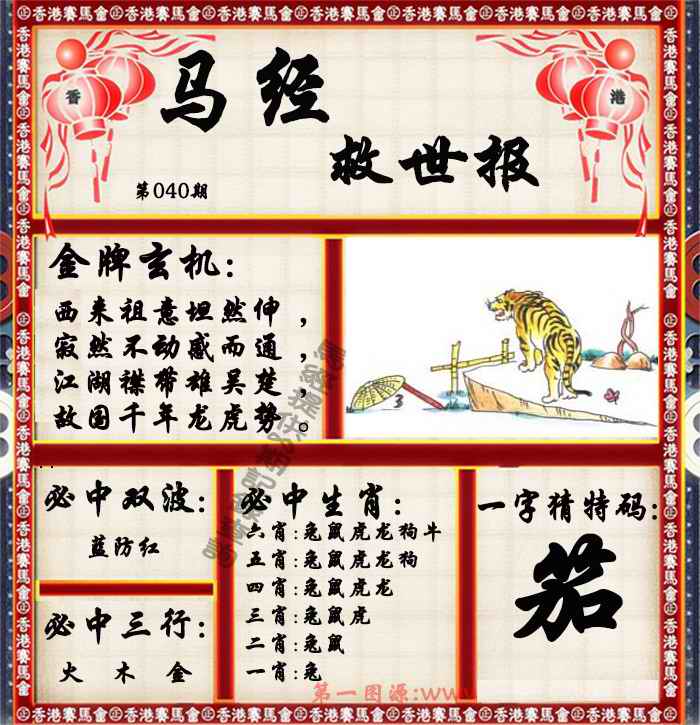 香港賽馬會
香 港
马经
救世报
第040期
金牌玄机:
西来祖意坦然伸，
寂然不动感而通，
江湖襟带雄吴楚，
故国千年龙虎势。
3
必中双波:
蓝防红
必中三行:
火 木 金
必中生肖:
六肖:兔鼠虎龙狗牛
五肖:兔鼠虎龙狗
四肖:兔鼠虎龙
三肖:兔鼠虎
二肖:兔鼠
一肖:兔
一字猜特码:
笳
第一图源:www